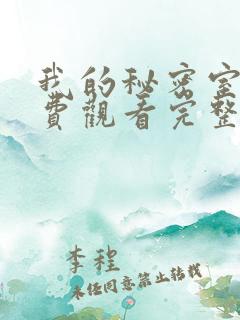 我的秘密室
費觀看完整
李程
未任同意禁止转载